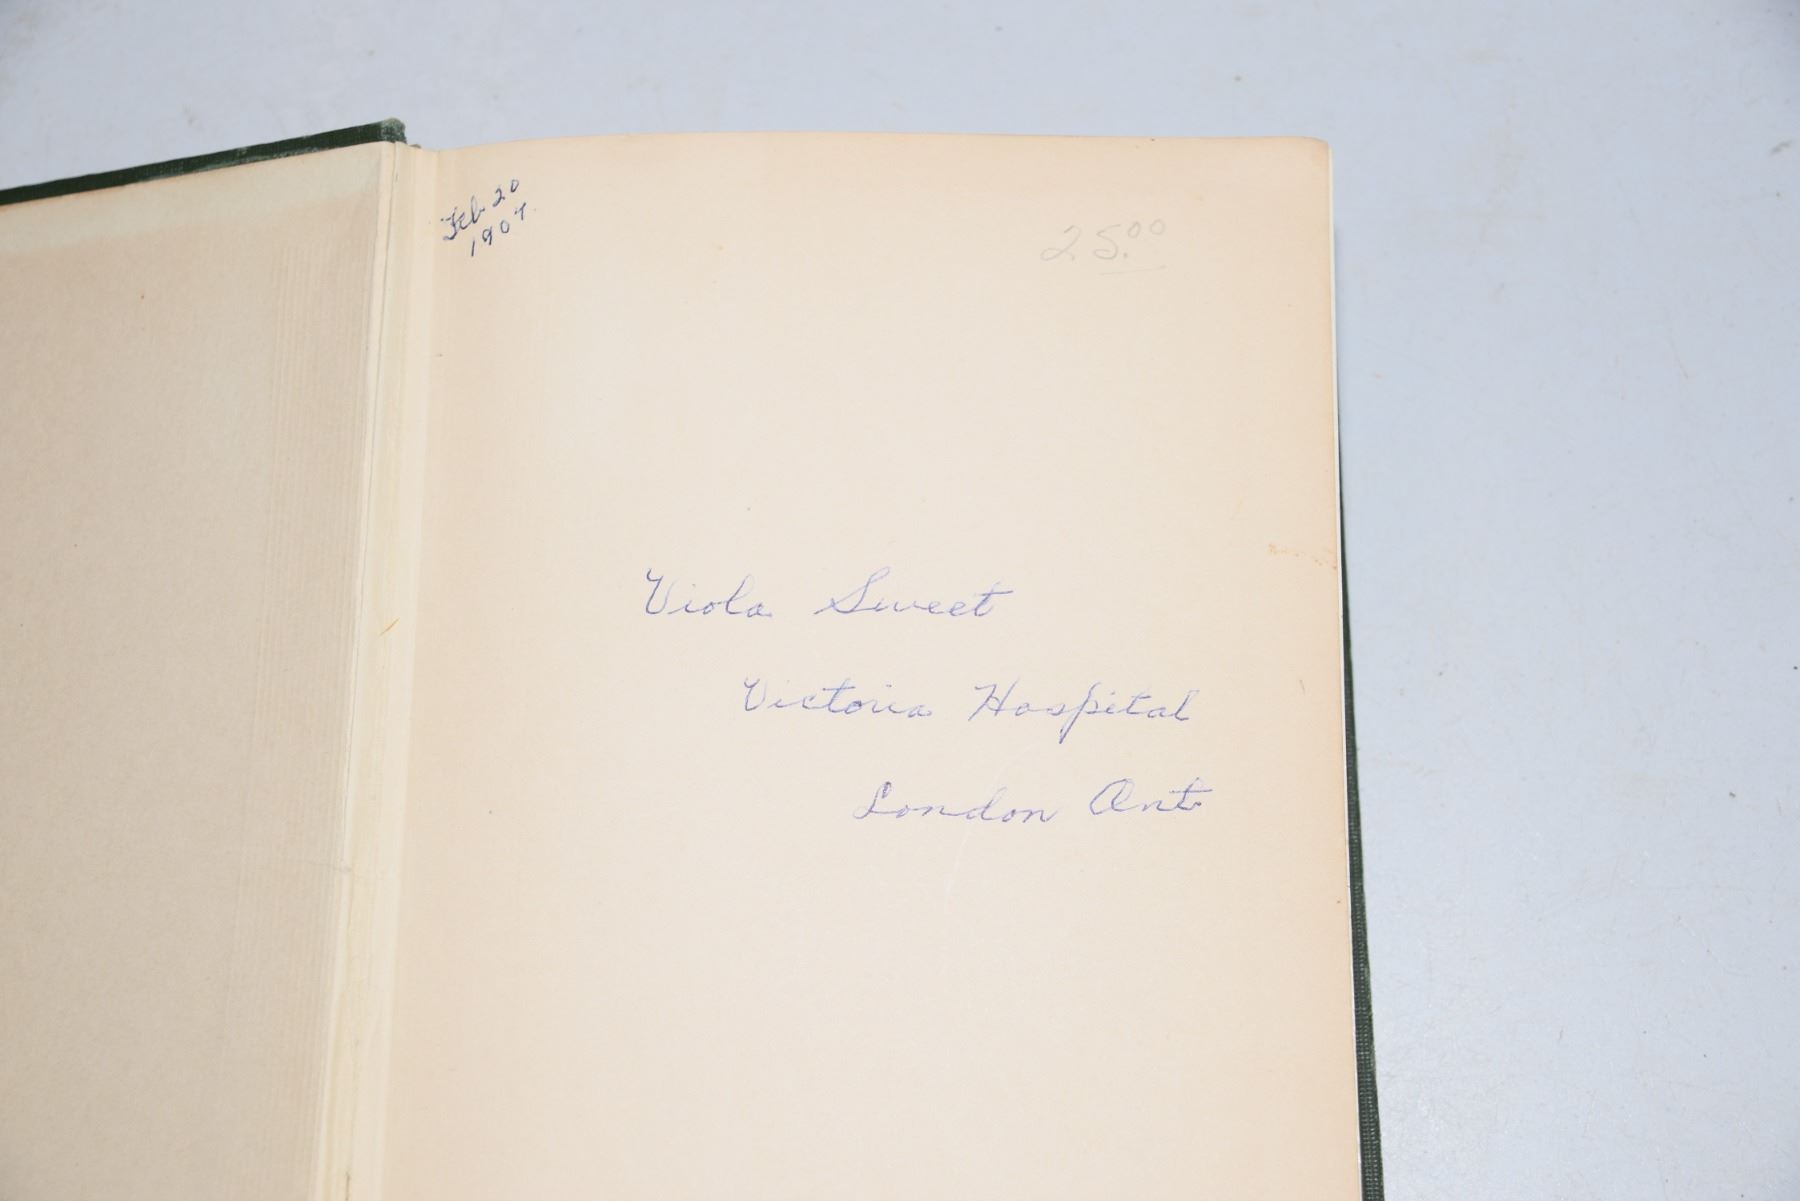 Feb 20
1907.
25.00
Viola Sweet
Victoria Hospital
London Ont.